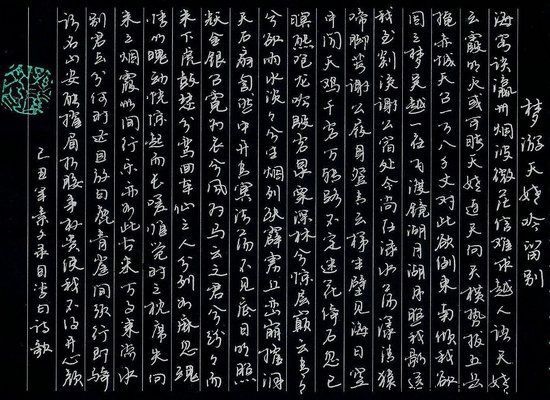 梦游天姥吟留别
海客谈瀛州烟波微茫信难求越人语天姥
云霞明灭或可睹天姥连天向天横势拔五岳
掩赤城天台一万八千丈对此欲倒东南倾我欲
因之梦吴越一夜飞渡镜湖月湖月照我影送
我至剡溪谢公宿处今尚在渌水荡漾清猿
啼脚著谢公屐身登青云梯半壁见海日空
中闻天鸡千岩万转路不定迷花倚石忽已
暝熊咆龙吟殷岩泉栗深林兮惊层巅云青々
兮欲雨水淡々兮生烟列缺霹雳丘峦崩摧洞
天石扇訇然中开青冥浩荡不见底日月照
耀金银台霓为衣兮风为马云之君兮纷々而
来下虎鼓瑟兮鸾回车仙之人兮列如麻忽魂
悸以魄动恍惊起而长嗟惟觉时之枕席失向
来之烟霞世间行乐亦如此古来万事东流水
别君去兮何时还且放白鹿青崖间须行即骑
访名山安能摧眉折腰事权贵使我不得开心颜
己丑年素文录自李白诗歌